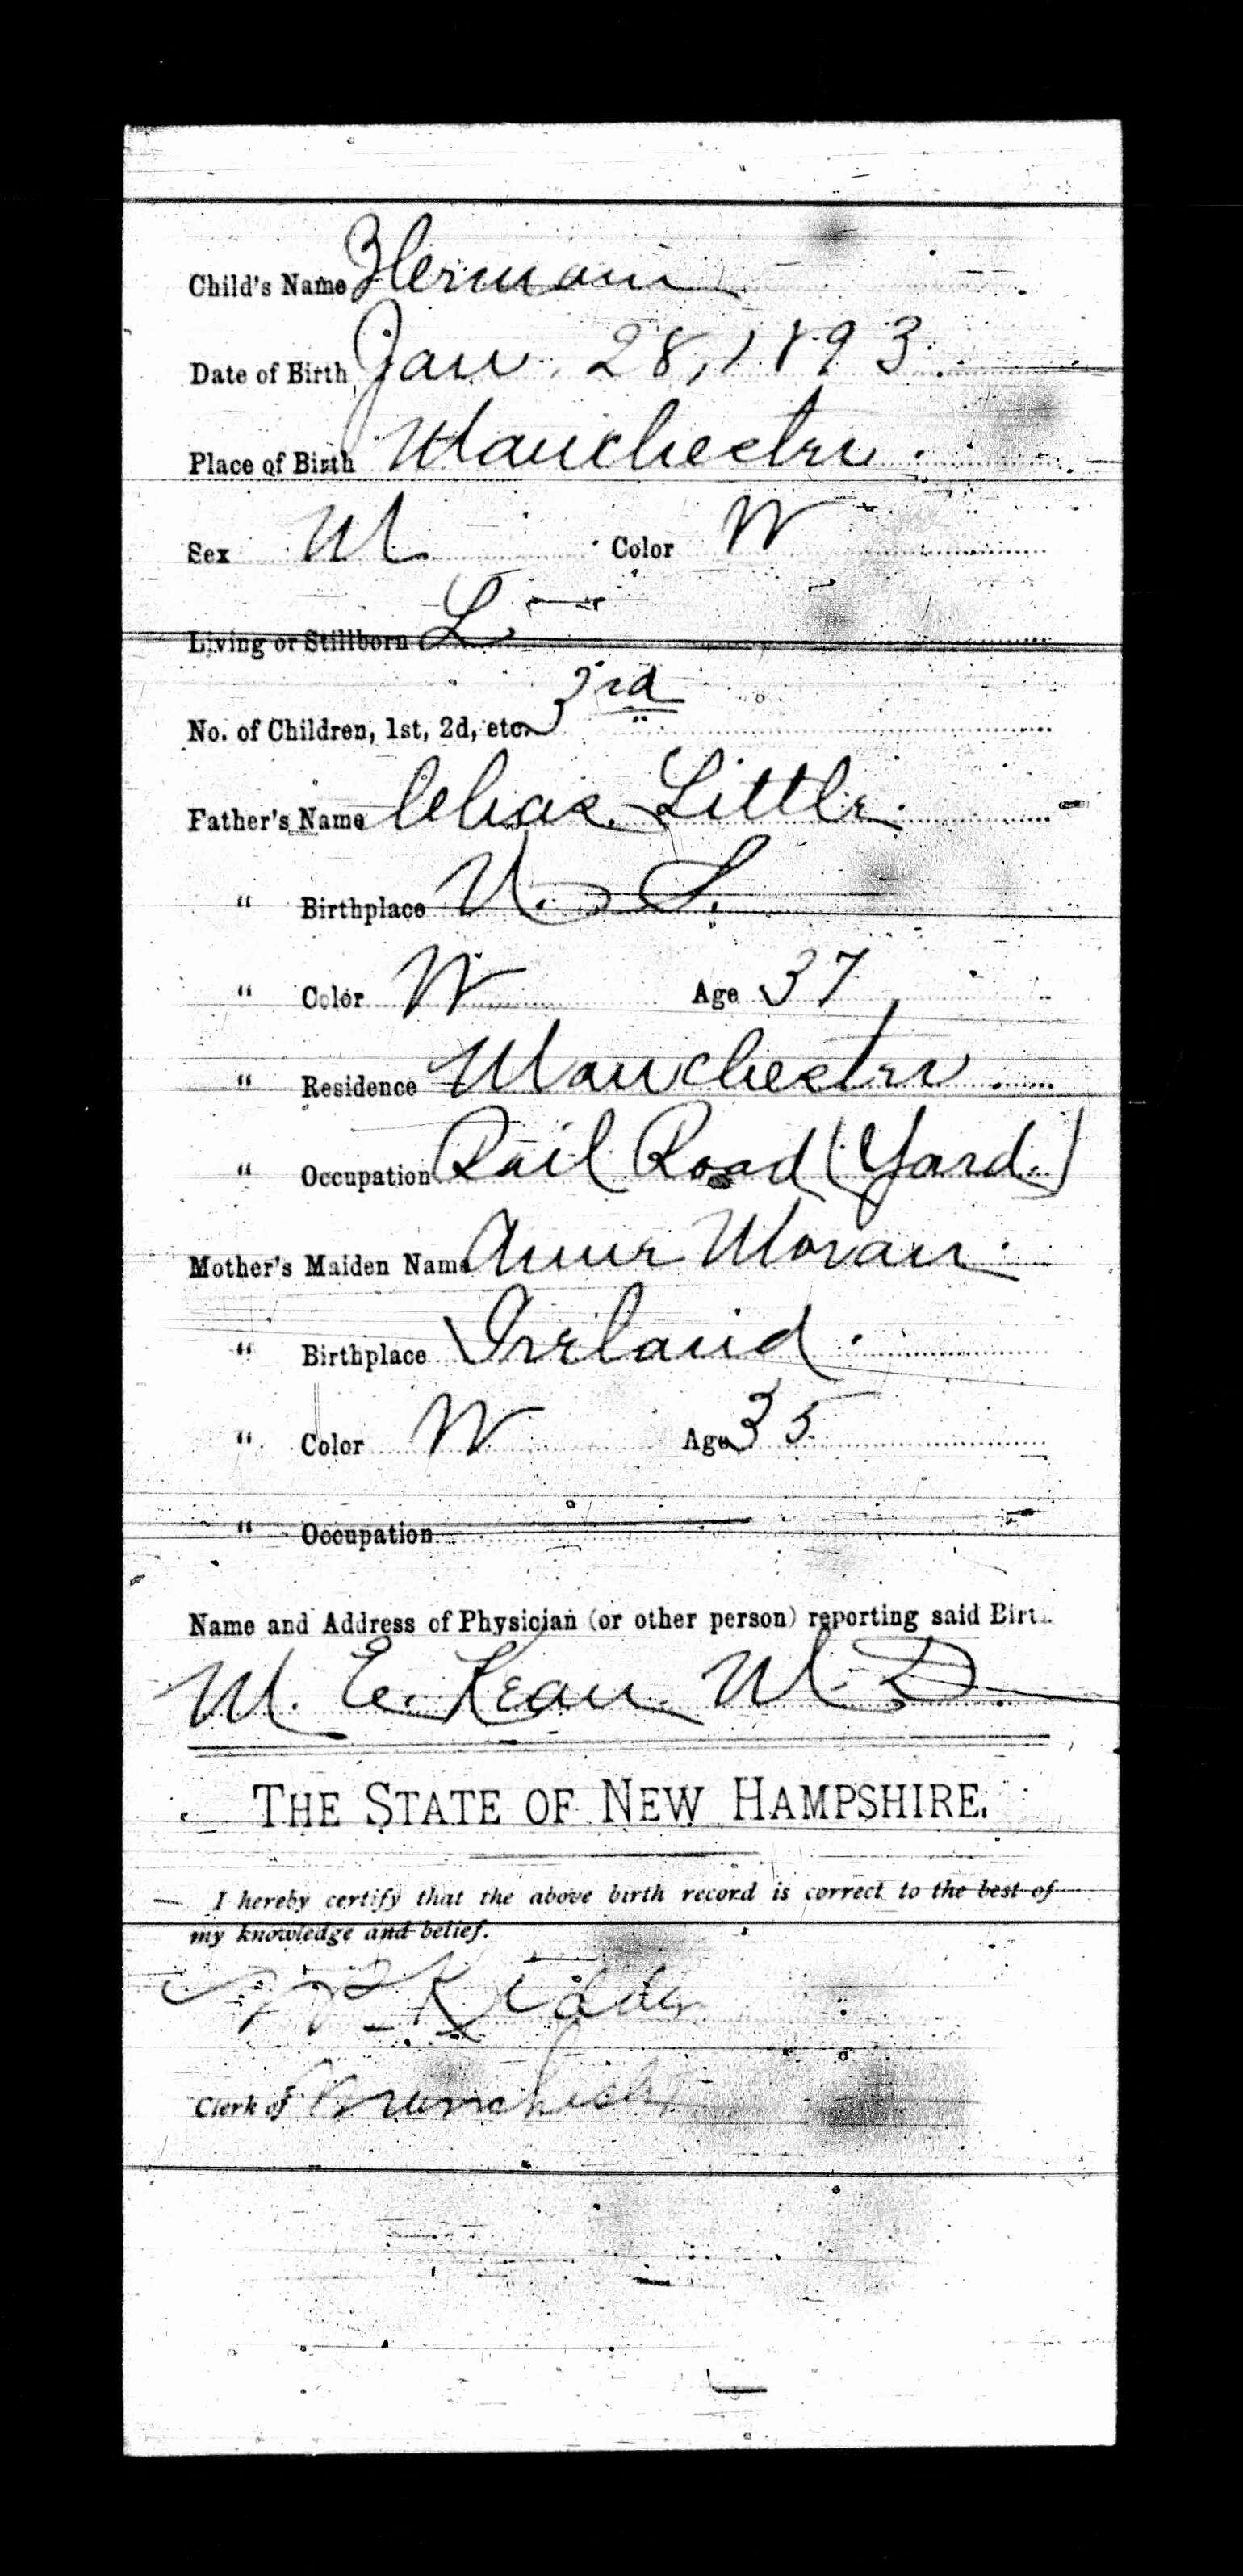 Child's Name Herman
Date of Birth Jan. 28, 1893.
Place of Birth Manchester.
Sex M Color W
Living or Stillborn L
No. of Children, 1st, 2d, etc. 3rd
Father's Name Chas. Little.
" Birthplace U. S.
" Color W Age 37
" Residence Manchester.
" Occupation Rail Road (Yard.)
Mother's Maiden Name Anne Moran.
" Birthplace Ireland.
" Color W Age 35
" Occupation
Name and Address of Physician (or other person) reporting said Birth.
M. E. Kean. M. D.
THE STATE OF NEW HAMPSHIRE.
I hereby certify that the above birth record is correct to the best of
my knowledge and belief.
Kidder
Clerk of